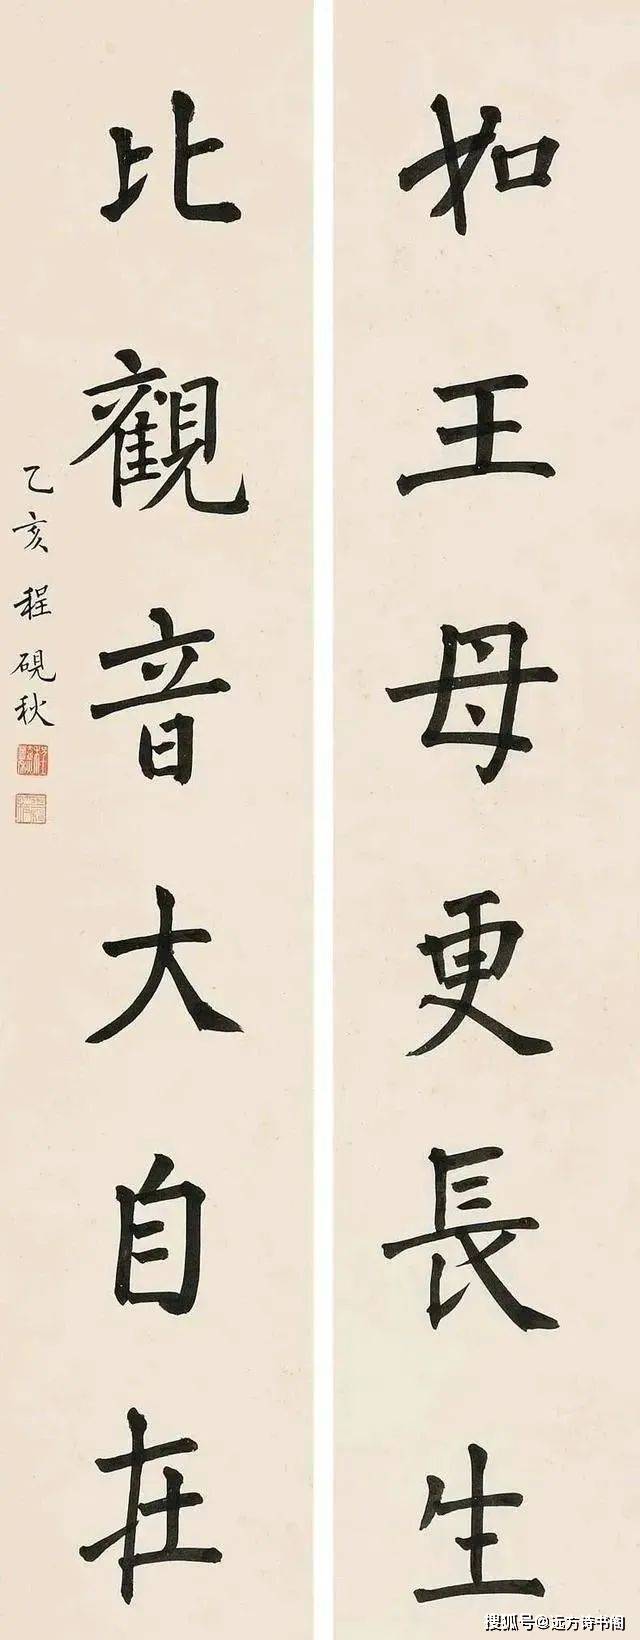 如王母更長生
比觀音大自在
乙亥 程硯秋
搜狐号@远方诗书阁